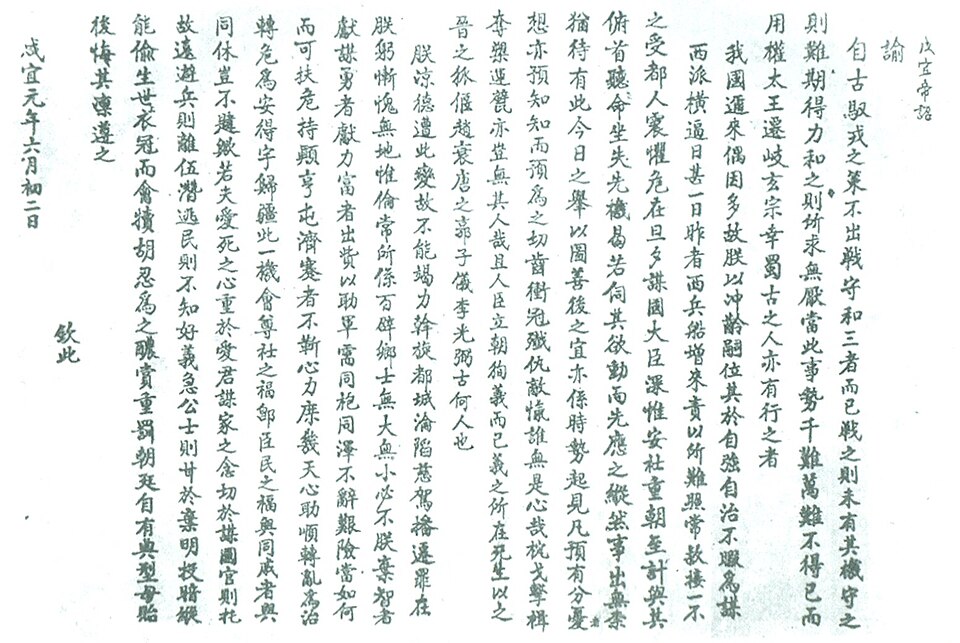 咸宜帝詔
諭
自古馭戎之策不出戰守和三者而已戰之則未有其機守之
則難期得力和之則所求無厭當此事勢千難萬難不得已而
用權太王遷岐玄宗幸蜀古之人亦有行之者
我國邇來偶因多故朕以冲齡嗣位其於自強自治不暇為謀
西派橫逼日甚一日昨者西兵船增來責以所難照常款接一不
之受都人震懼危在旦夕謀國大臣深惟安社重朝至計與其
俯首聽命坐失先機曷若伺其欲動而先應之縱然事出無柰
猶待有此今日之舉以圖善後之宜亦係時勢起見凡預有分憂
想亦預知知而預為之切齒衝冠殲仇敵愾誰無是心哉枕戈擊楫
奪槊運甓亦豈無其人哉且人臣立朝徇義而已義之所在死生以之
晉之狐偃趙衰唐之郭子儀李光弼古何人也
朕凉德遭此變故不能竭力斡旋都城淪陷慈駕播遷罪在
朕躬慚愧無地惟倫常所係百辟鄉士無大無小必不朕棄智者
獻謀勇者獻力富者出貲以助軍需同袍同澤不辭艱險當如何
而可扶危持顛亨屯濟蹇者不靳心力庶幾天心助順轉亂為治
轉危為安得宇歸疆此一機會尊社之福卽臣民之福與同戚者與
同休豈不韙歟若夫愛死之心重於愛君謀家之念切於謀國官則托
故遠避兵則離伍潛逃民則不知好義急公士則甘於棄明投暗縱
能偷生世衣冠而會犢胡忍為之醲賞重罰朝廷自有典型毋貽
後悔其凜遵之
欽此
咸宜元年六月初二日